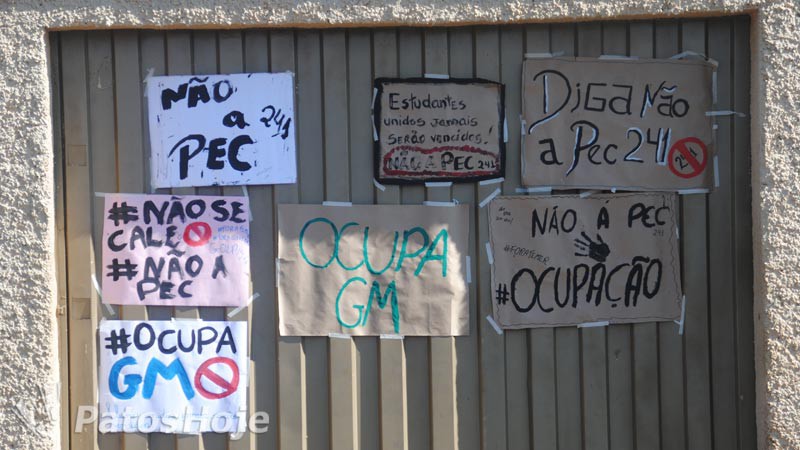 NÃO
a 241
PEC
Estudantes
unidos jamais
SERÃO vencidos!
NÃO A PEC 241
DiGa Não
a Pec 241
241
#NÃO SE
CALE
#NÃO A
PEC
OCUPA
GM
NÃO Á PEC
241
#FORATEMER
#OCUPAÇÃO
#OCUPA
GM
PatosHoje